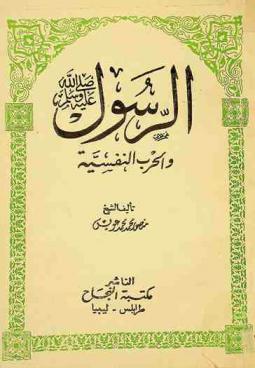 الرسول صلى الله عليه وسلم
والحرب النفسية
تأليف الشيخ
منصور محمد محمد عويس
الناشر
مكتبة النجاح
طرابلس - ليبيا